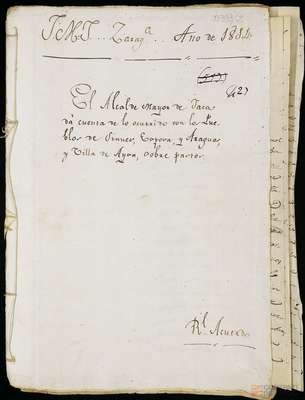 JMJ.. Zarag.ª Año de 1814
(42)
El Alcalde mayor de Jaca
dá cuenta de lo ocurrido con los Pue-
blos de y Aragues,
y Villa de sobre pastos.
R.l Acuerdo